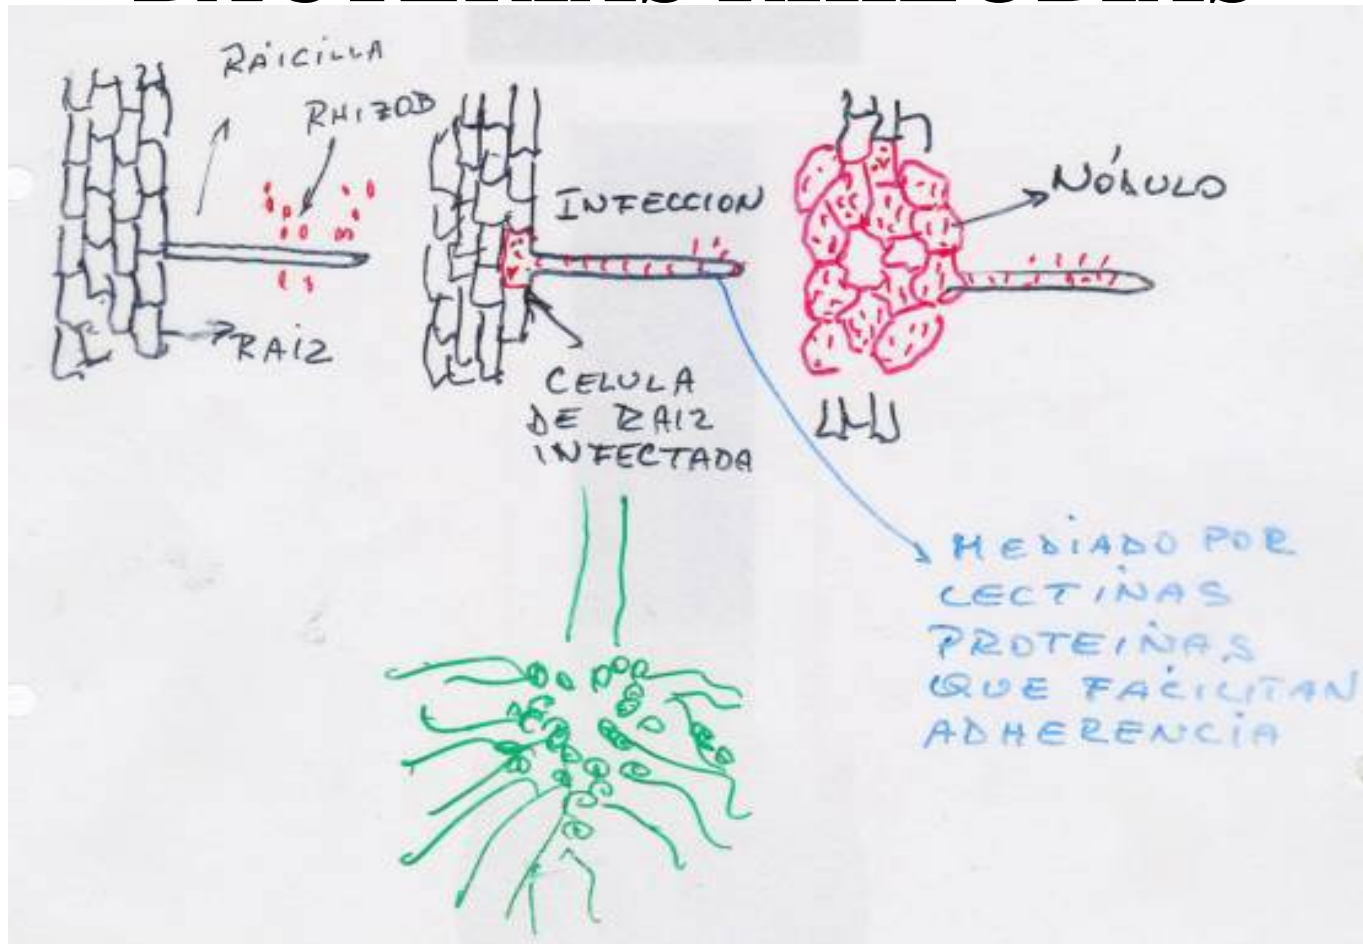 RAICILLA
RHIZOB
RAIZ
INFECCION
CELULA
DE RAIZ
INFECTADA
NÓDULO
MEDIADO POR
LECTINAS
PROTEINAS
QUE FACILITAN
ADHERENCIA